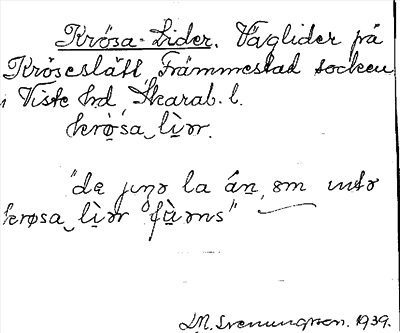 Krösa-Lider. Väglider på
Kröseslätt, Främmestad socken
i Viste hd, Skarab. l.
krøsa lìər.
"dę jinə la án, əm intə
krøsa lìər fàəns"
M. Svenungsson. 1939.